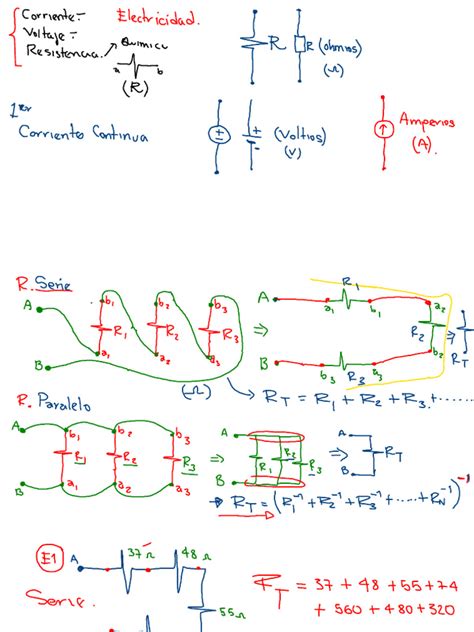 Corriente.- Electricidad.
Voltaje.-
Resistencia. Químico
a b
(R)
R R (ohmios)
(Ω)
1er
Corriente Continua
(Voltios)
(V)
Amperios
(A).
R. Serie
A b1 b2 b3
R1 R2 R3
a1 a2 a3
B
(Ω)
⇒
A R1 a2
a1 b1
R2
B b2
b3 R3 a3
⇒ RT
RT = R1 + R2 + R3 + ......
R. Paralelo
A b1 b2 b3
R1 R2 R3
B a1 a2 a3
⇒ A B R1 R2 R3
⇒ A B RT
RT = (R1⁻¹ + R2⁻¹ + R3⁻¹ + ..... + RN⁻¹)⁻¹
E1 A 37Ω 48Ω
Serie.
55Ω
RT = 37 + 48 + 55 + 74
+ 560 + 480 + 320